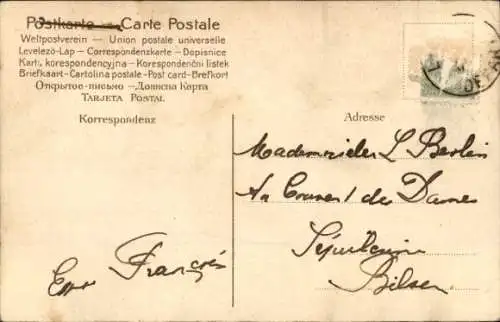 Postkarte — Carte Postale
Weltpostverein — Union postale universelle
Levelező-Lap — Correspondenzkarte — Dopisnice
Kartą korespondencyjna — Korespondenční listek
Briefkaart - Cartolina postale - Post card - Brefkort
Открытое-письмо — Дописна Карта
Tarjeta Postal
Korrespondenz
Adresse
L Berlin
Au Couvent des Dames
François
Bilsen